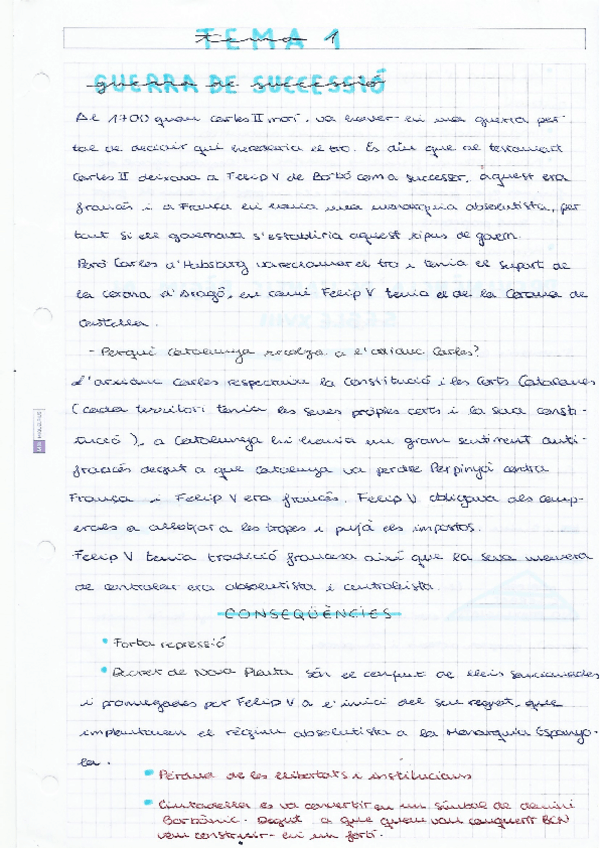 TEMA 1
GUERRA DE SUCCESSIÓ
Al 1700 quan Carles II morí, va haver-hi una guerra per
tal de decidir qui heredaria el tro. És diu que al testament
Carles II deixava a Felip V de Borbó com a successor, aquest era
francés i a França hi havia una monarquia absolutista, per
tant si ell governava s'establiria aquest tipus de govern.
Però Carles d'Habsburg va reclamar el tro i tenia el suport de
la corona d'Aragó, en canvi Felip V tenia el de la Corona de
Castella.
- Perquè Catalunya recolza a l'arxiduc Carles?
L'arxiduc Carles respectaria la Constitució i les Corts Catalanes
(cada territori tenia les seves pròpies corts i la seva consti-
tució), a Catalunya hi havia un gran sentiment anti-
francés degut a que Catalunya va perdre Perpinyà contra
França i Felip V era francés. Felip V obligava als camp-
erols a allotjar a les tropes i pujà els impostos.
Felip V tenia tradició francesa així que la seva manera
de controlar era absolutista i centralista.
CONSEQÜÈNCIES
• Forta repressió
• Decret de Nova Planta són el conjunt de lleis sancionades
i promogades per Felip V a l'inici del seu regnat, que
implantaven el règim absolutista a la Monarquia Espanyo-
la.
• Pèrdua de les llibertats i institucions
• Ciutadella es va convertir en un símbol de domini
Borbònic. Degut a que quan van conquerir BCN
van construir-hi un fortí.